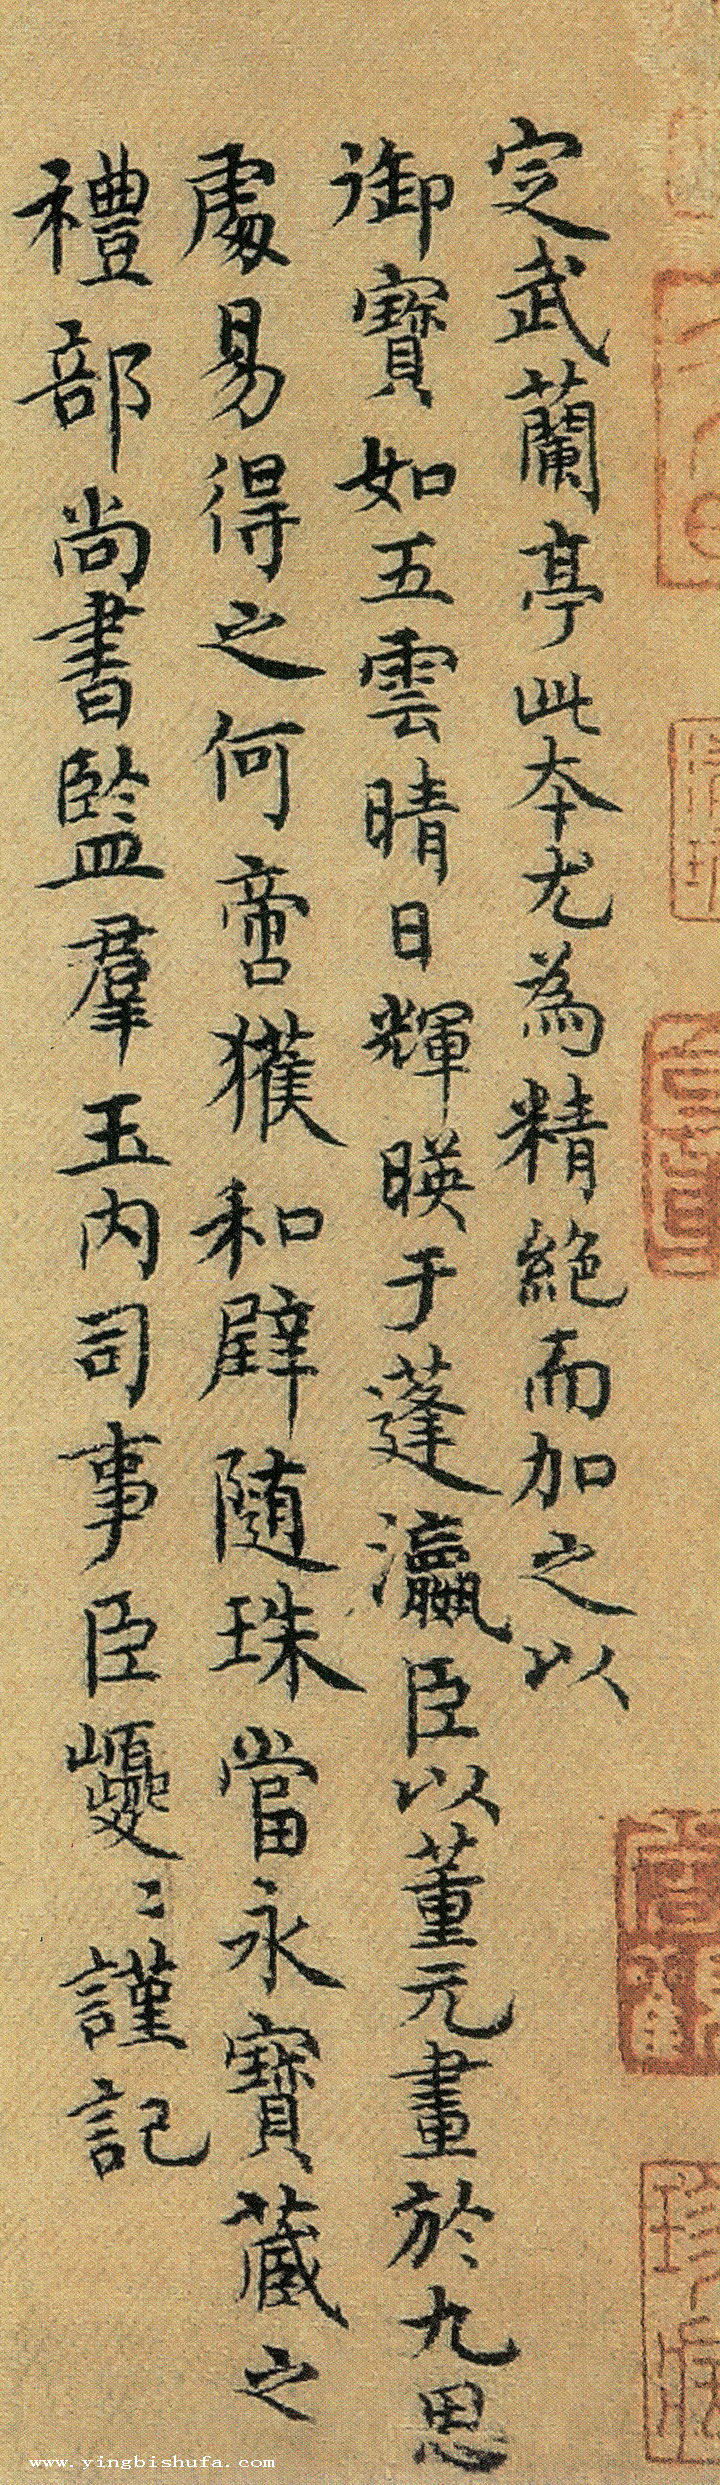 定武蘭亭此本尤為精絕而加之以
御寶如五雲晴日輝暎于蓬瀛臣以董元畫於九思
處易得之何啻獲和璧隨珠當永寶藏之
禮部尚書監羣玉內司事臣巙〻謹記
www.yingbishufa.com